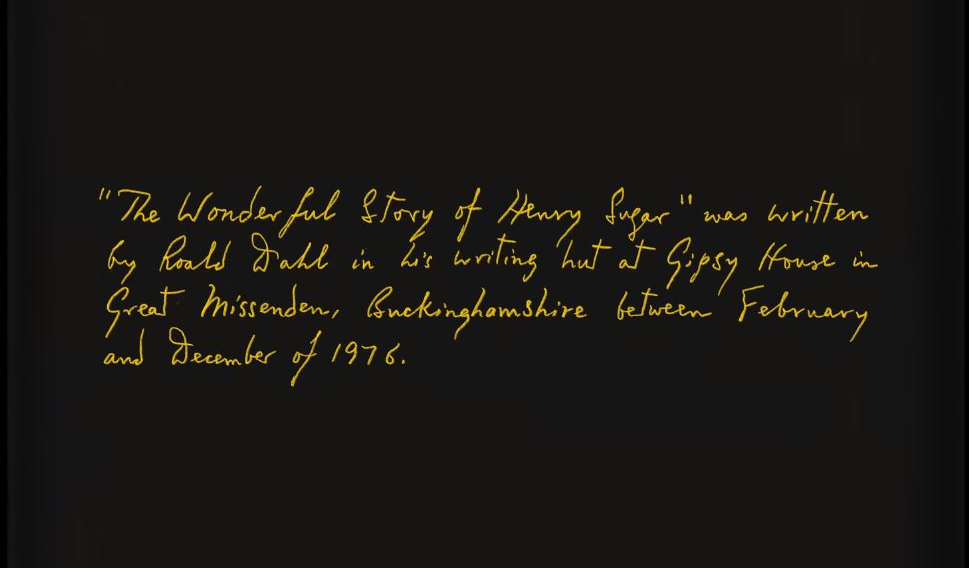 "The Wonderful Story of Henry Sugar" was written
by Roald Dahl in his writing hut at Gipsy House in
Great Missenden, Buckinghamshire between February
and December of 1976.